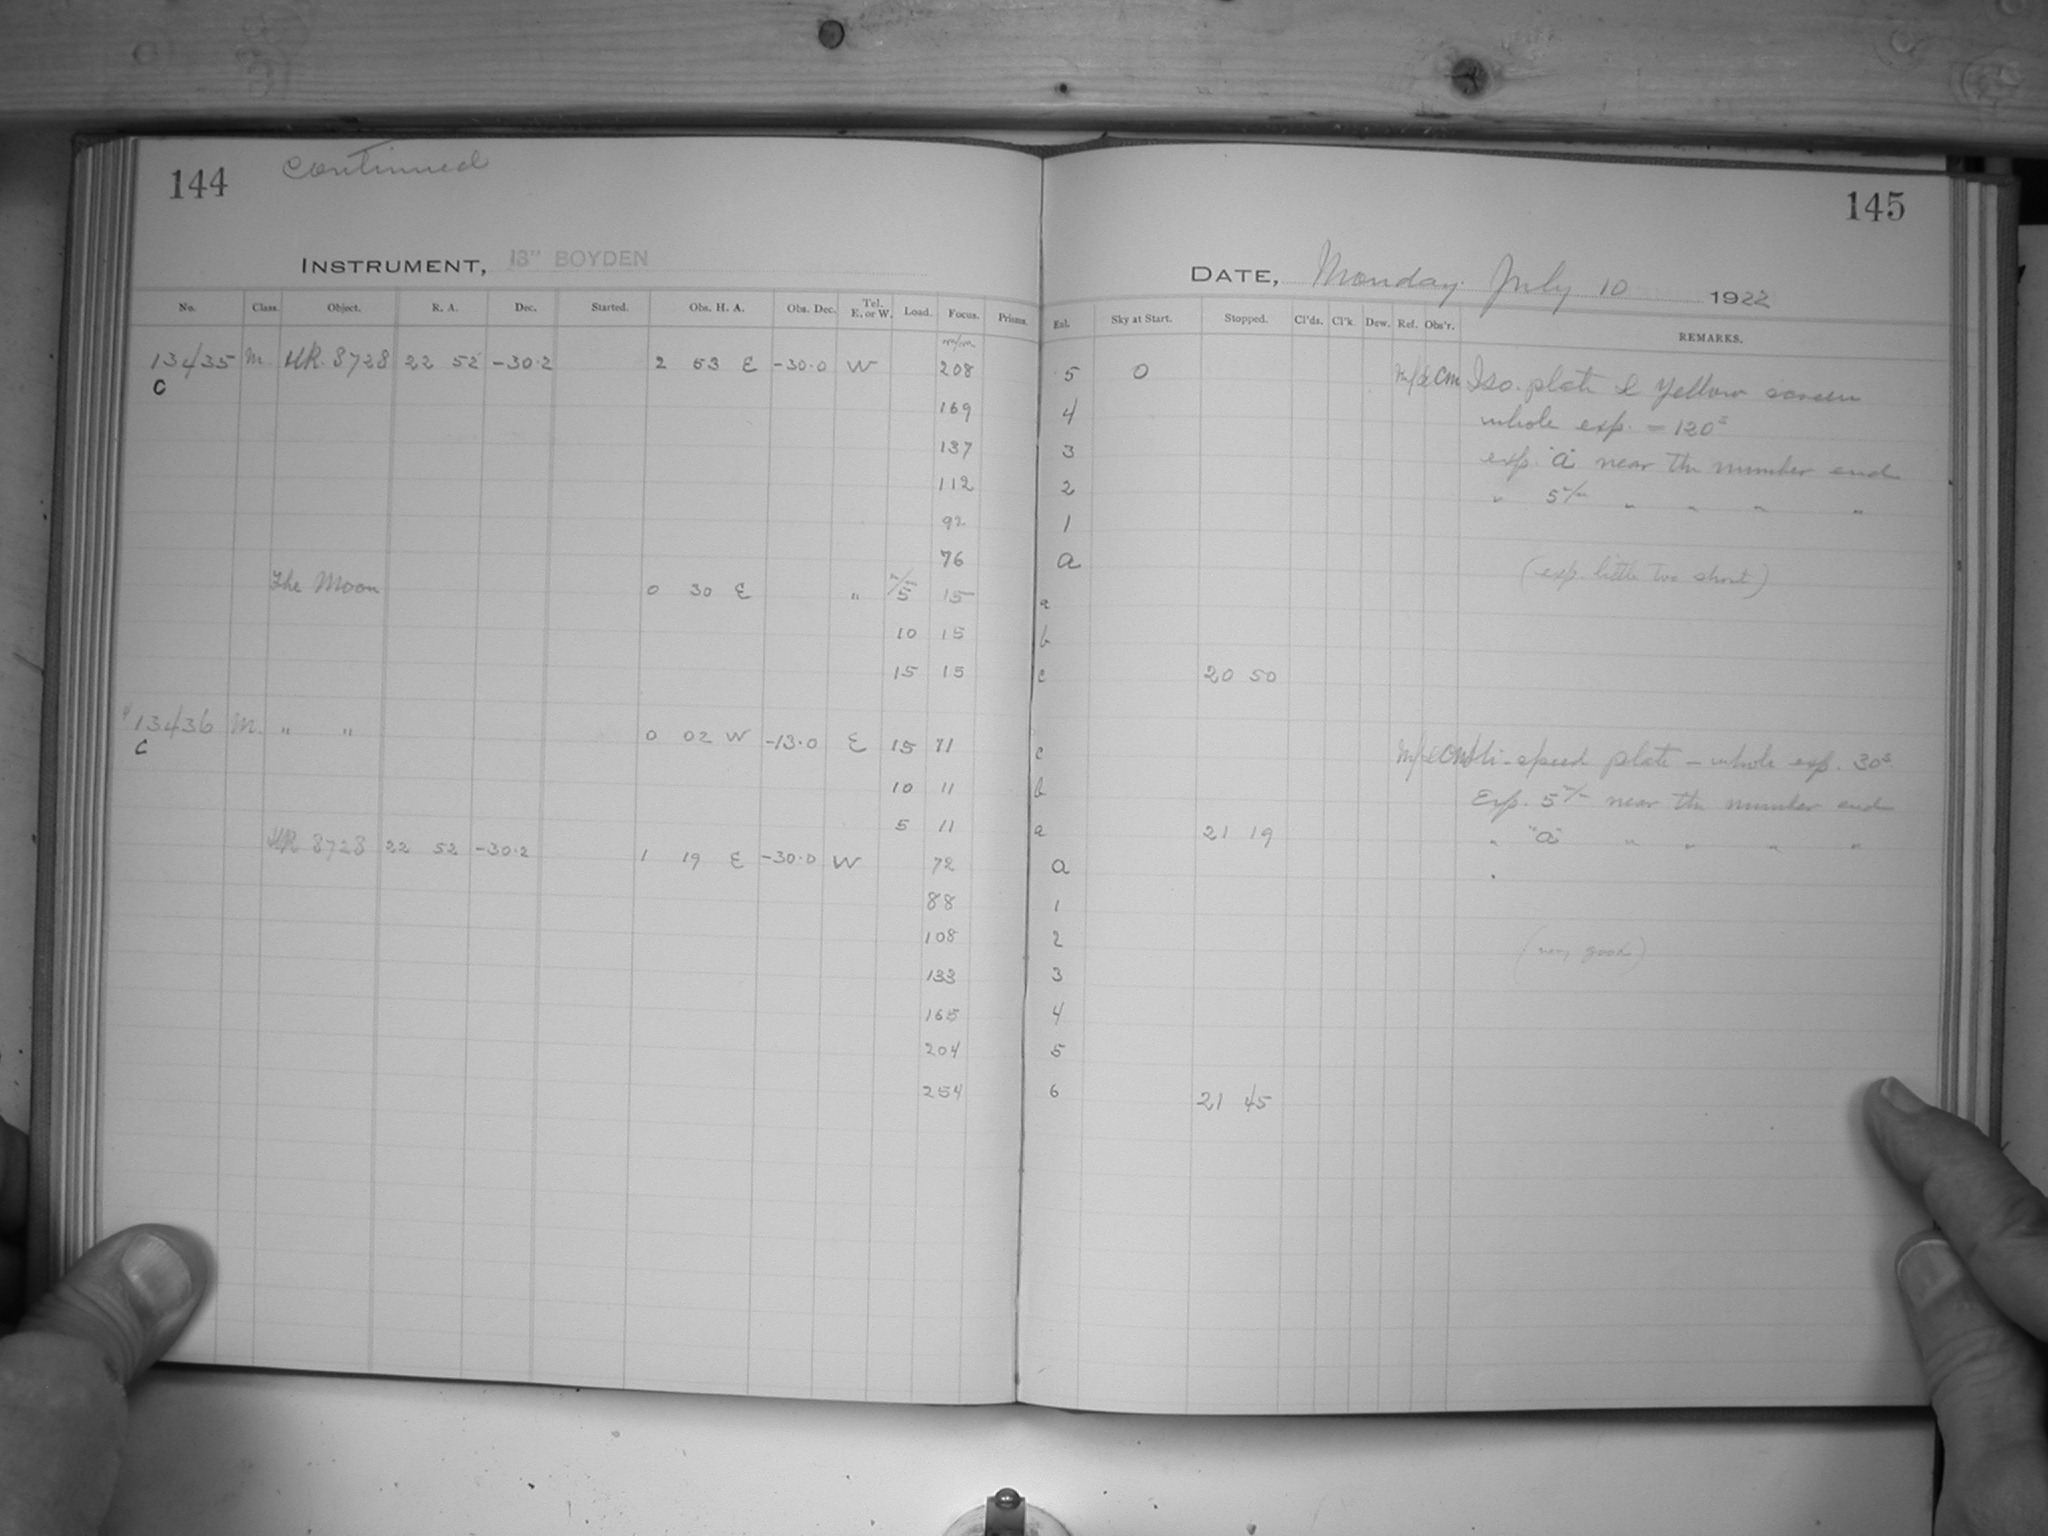 144 continued
145
INSTRUMENT, 13" BOYDEN
DATE, Monday July 10 1922
No. Class. Object. R. A. Dec. Started. Obs. H. A. Obs. Dec. Tel. E. or W. Load. Focus. Prisms. Eal. Sky at Start. Stopped. Cl'ds. Cl'k. Dew. Ref. Obs'r. REMARKS.
m/m
13435 M. HR. 8728 22 52 -30.2 2 53 E -30.0 W 208 5 0 Iso. plate & Yellow screen
C 169 4 whole exp. = 120s
137 3 exp. "a" near the number end
112 2 " 5 " " " "
92 1
76 a (exp. little too short)
The Moon 0 30 E " 5 15 a
10 15 b
15 15 c 20 50
13436 M. " " 0 02 W -13.0 E 15 11 c Hi-speed plate - whole exp. 30s
C 10 11 b Exp. 5 near the number end
5 11 a 21 19 " "a" " " " "
HR 8728 22 52 -30.2 1 19 E -30.0 W 72 a
88 1
108 2 (very good)
133 3
165 4
204 5
254 6 21 45